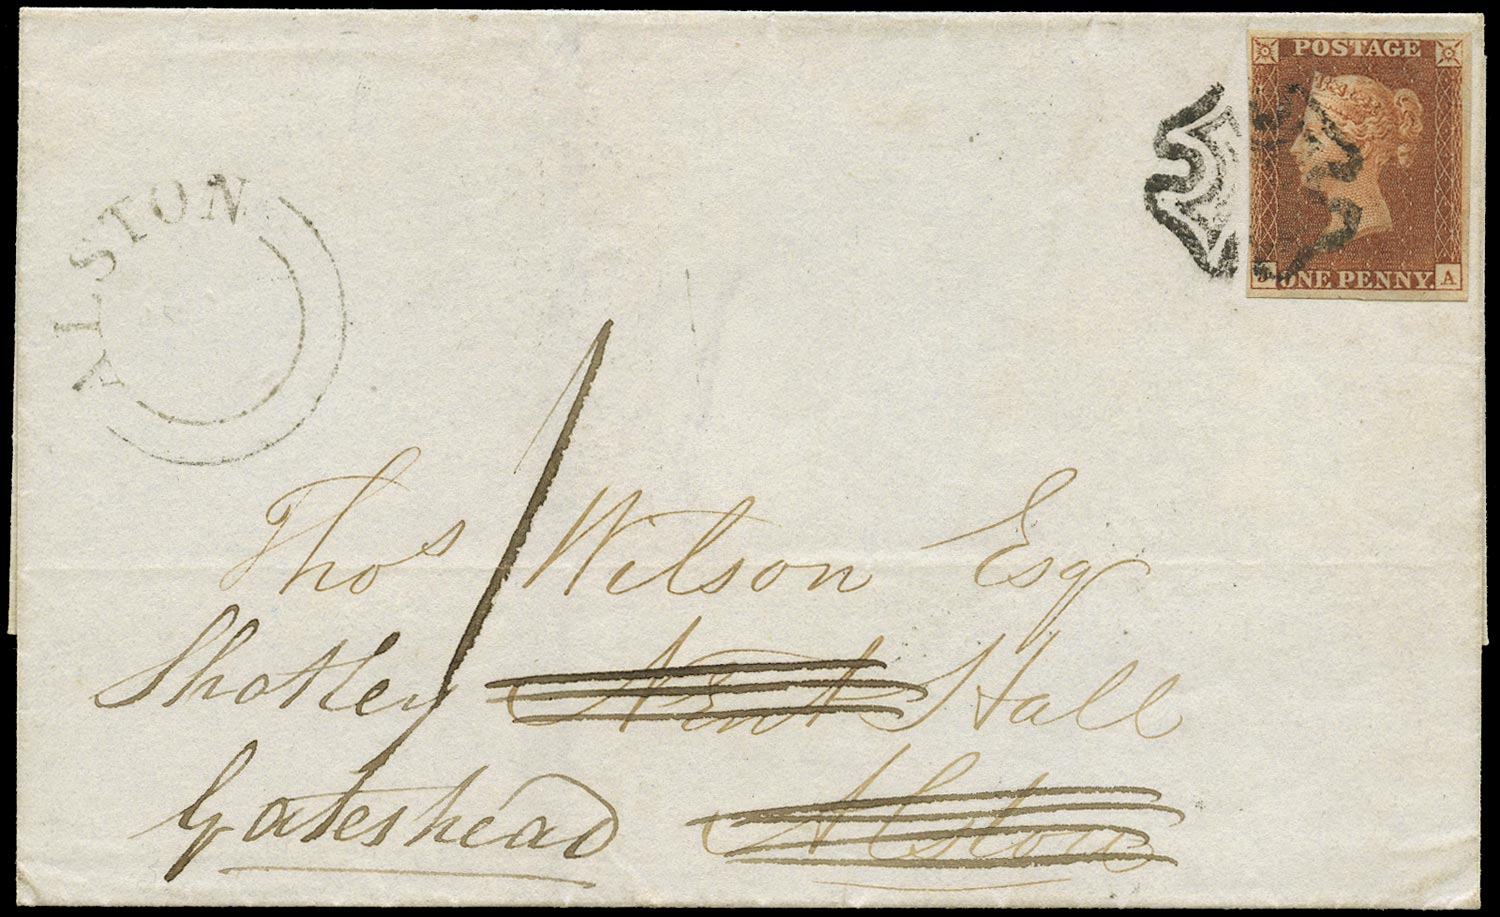 POSTAGE
ONE PENNY.
A
ALSTON
1
Thos Wilson Esq
Shotley Nent Hall
Gateshead Alston